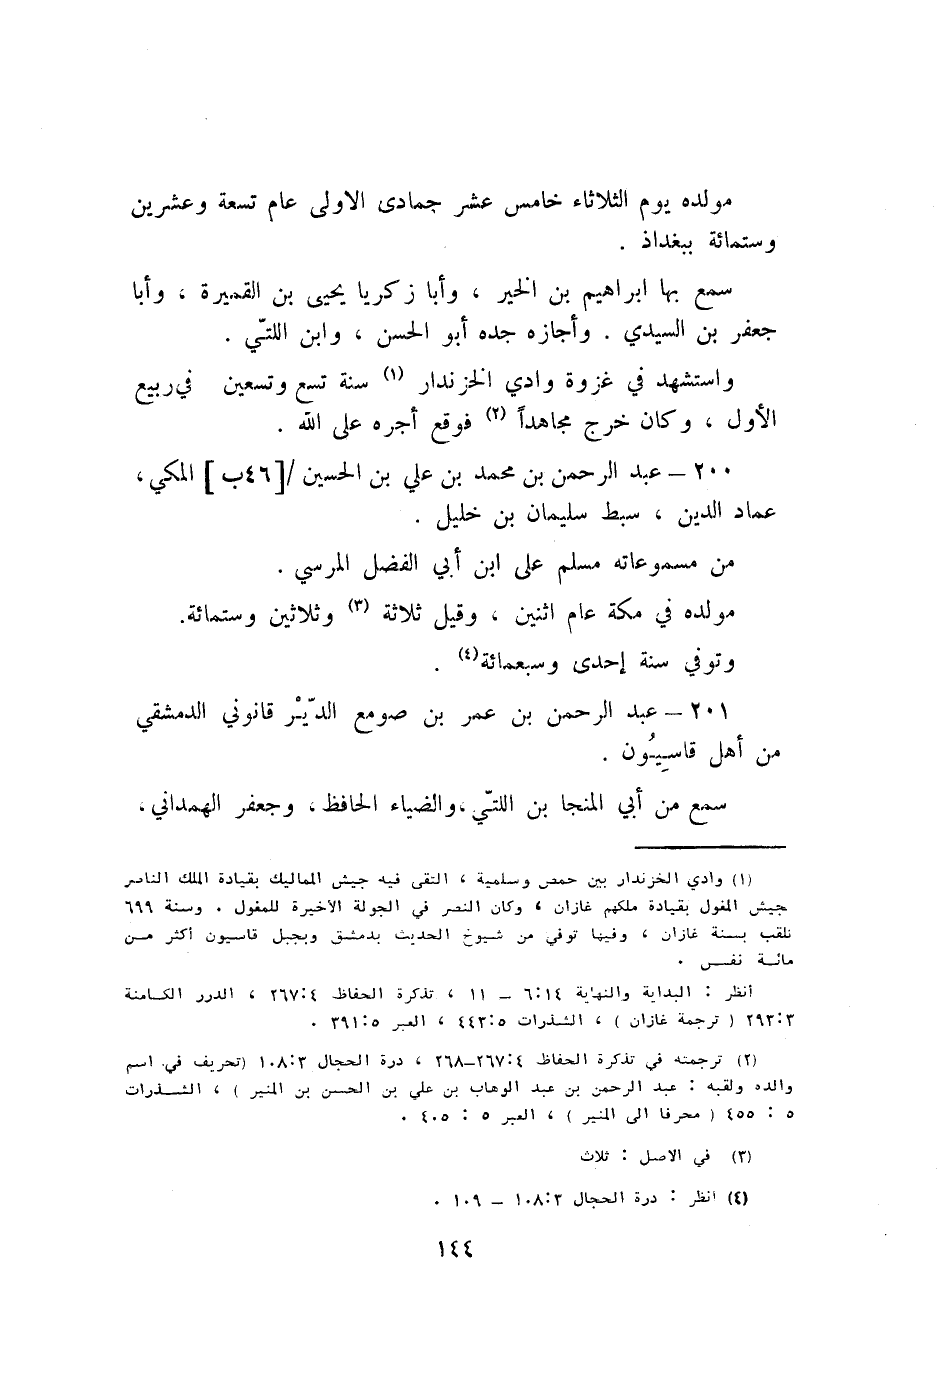 مولده يوم الثلاثاء خامس عشر جمادى الاولى عام تسعة وعشرين
وستمائة ببغداذ .
سمع بها ابراهيم بن الخير ، وأبا زكريا يحيى بن القميرة ، وأبا
جعفر بن السيدي . وأجازه جده أبو الحسن ، وابن اللتّي .
واستشهد في غزوة وادي الخزندار (١) سنة تسع وتسعين في ربيع
الأول ، وكان خرج مجاهداً (٢) فوقع أجره على الله .
٢٠٠ – عبد الرحمن بن محمد بن علي بن الحسين /[٤٦ب] المكي ،
عماد الدين ، سبط سليمان بن خليل .
من مسموعاته مسلم على ابن أبي الفضل المرسي .
مولده في مكة عام اثنين ، وقيل ثلاثة (٣) وثلاثين وستمائة.
وتوفي سنة إحدى وسبعمائة(٤) .
٢٠١ – عبد الرحمن بن عمر بن صومع الدّيْر قانوني الدمشقي
من أهل قاسِيُون .
سمع من أبي المنجا بن اللتّي ،والضياء الحافظ ، وجعفر الهمداني ،
(١) وادي الخزندار بين حمص وسلمية ، التقى فيه جيش المماليك بقيادة الملك الناصر
جيش المغول بقيادة ملكهم غازان ، وكان النصر في الجولة الاخيرة للمغول . وسنة ٦٩٩
تلقب بسنة غازان ، وفيها توفي من شيوخ الحديث بدمشق وبجبل قاسيون أكثر من
مائة نفس .
أنظر : البداية والنهاية ٦:١٤ – ١١ ، تذكرة الحفاظ ٢٦٧:٤ ، الدرر الكامنة
٢٩٣:٣ ( ترجمة غازان ) ، الشذرات ٤٤٣:٥ ، العبر ٣٩١:٥ .
(٢) ترجمته في تذكرة الحفاظ ٢٦٧:٤–٢٦٨ ، درة الحجال ١٠٨:٣ (تحريف في اسم
والده ولقبه : عبد الرحمن بن عبد الوهاب بن علي بن الحسن بن المنير ) ، الشذرات
٥ : ٤٥٥ ( محرفا الى المنير ) ، العبر ٥ : ٤٠٥ .
(٣) في الاصل : ثلاث
(٤) انظر : درة الحجال ١٠٨:٣ – ١٠٩ .
١٤٤